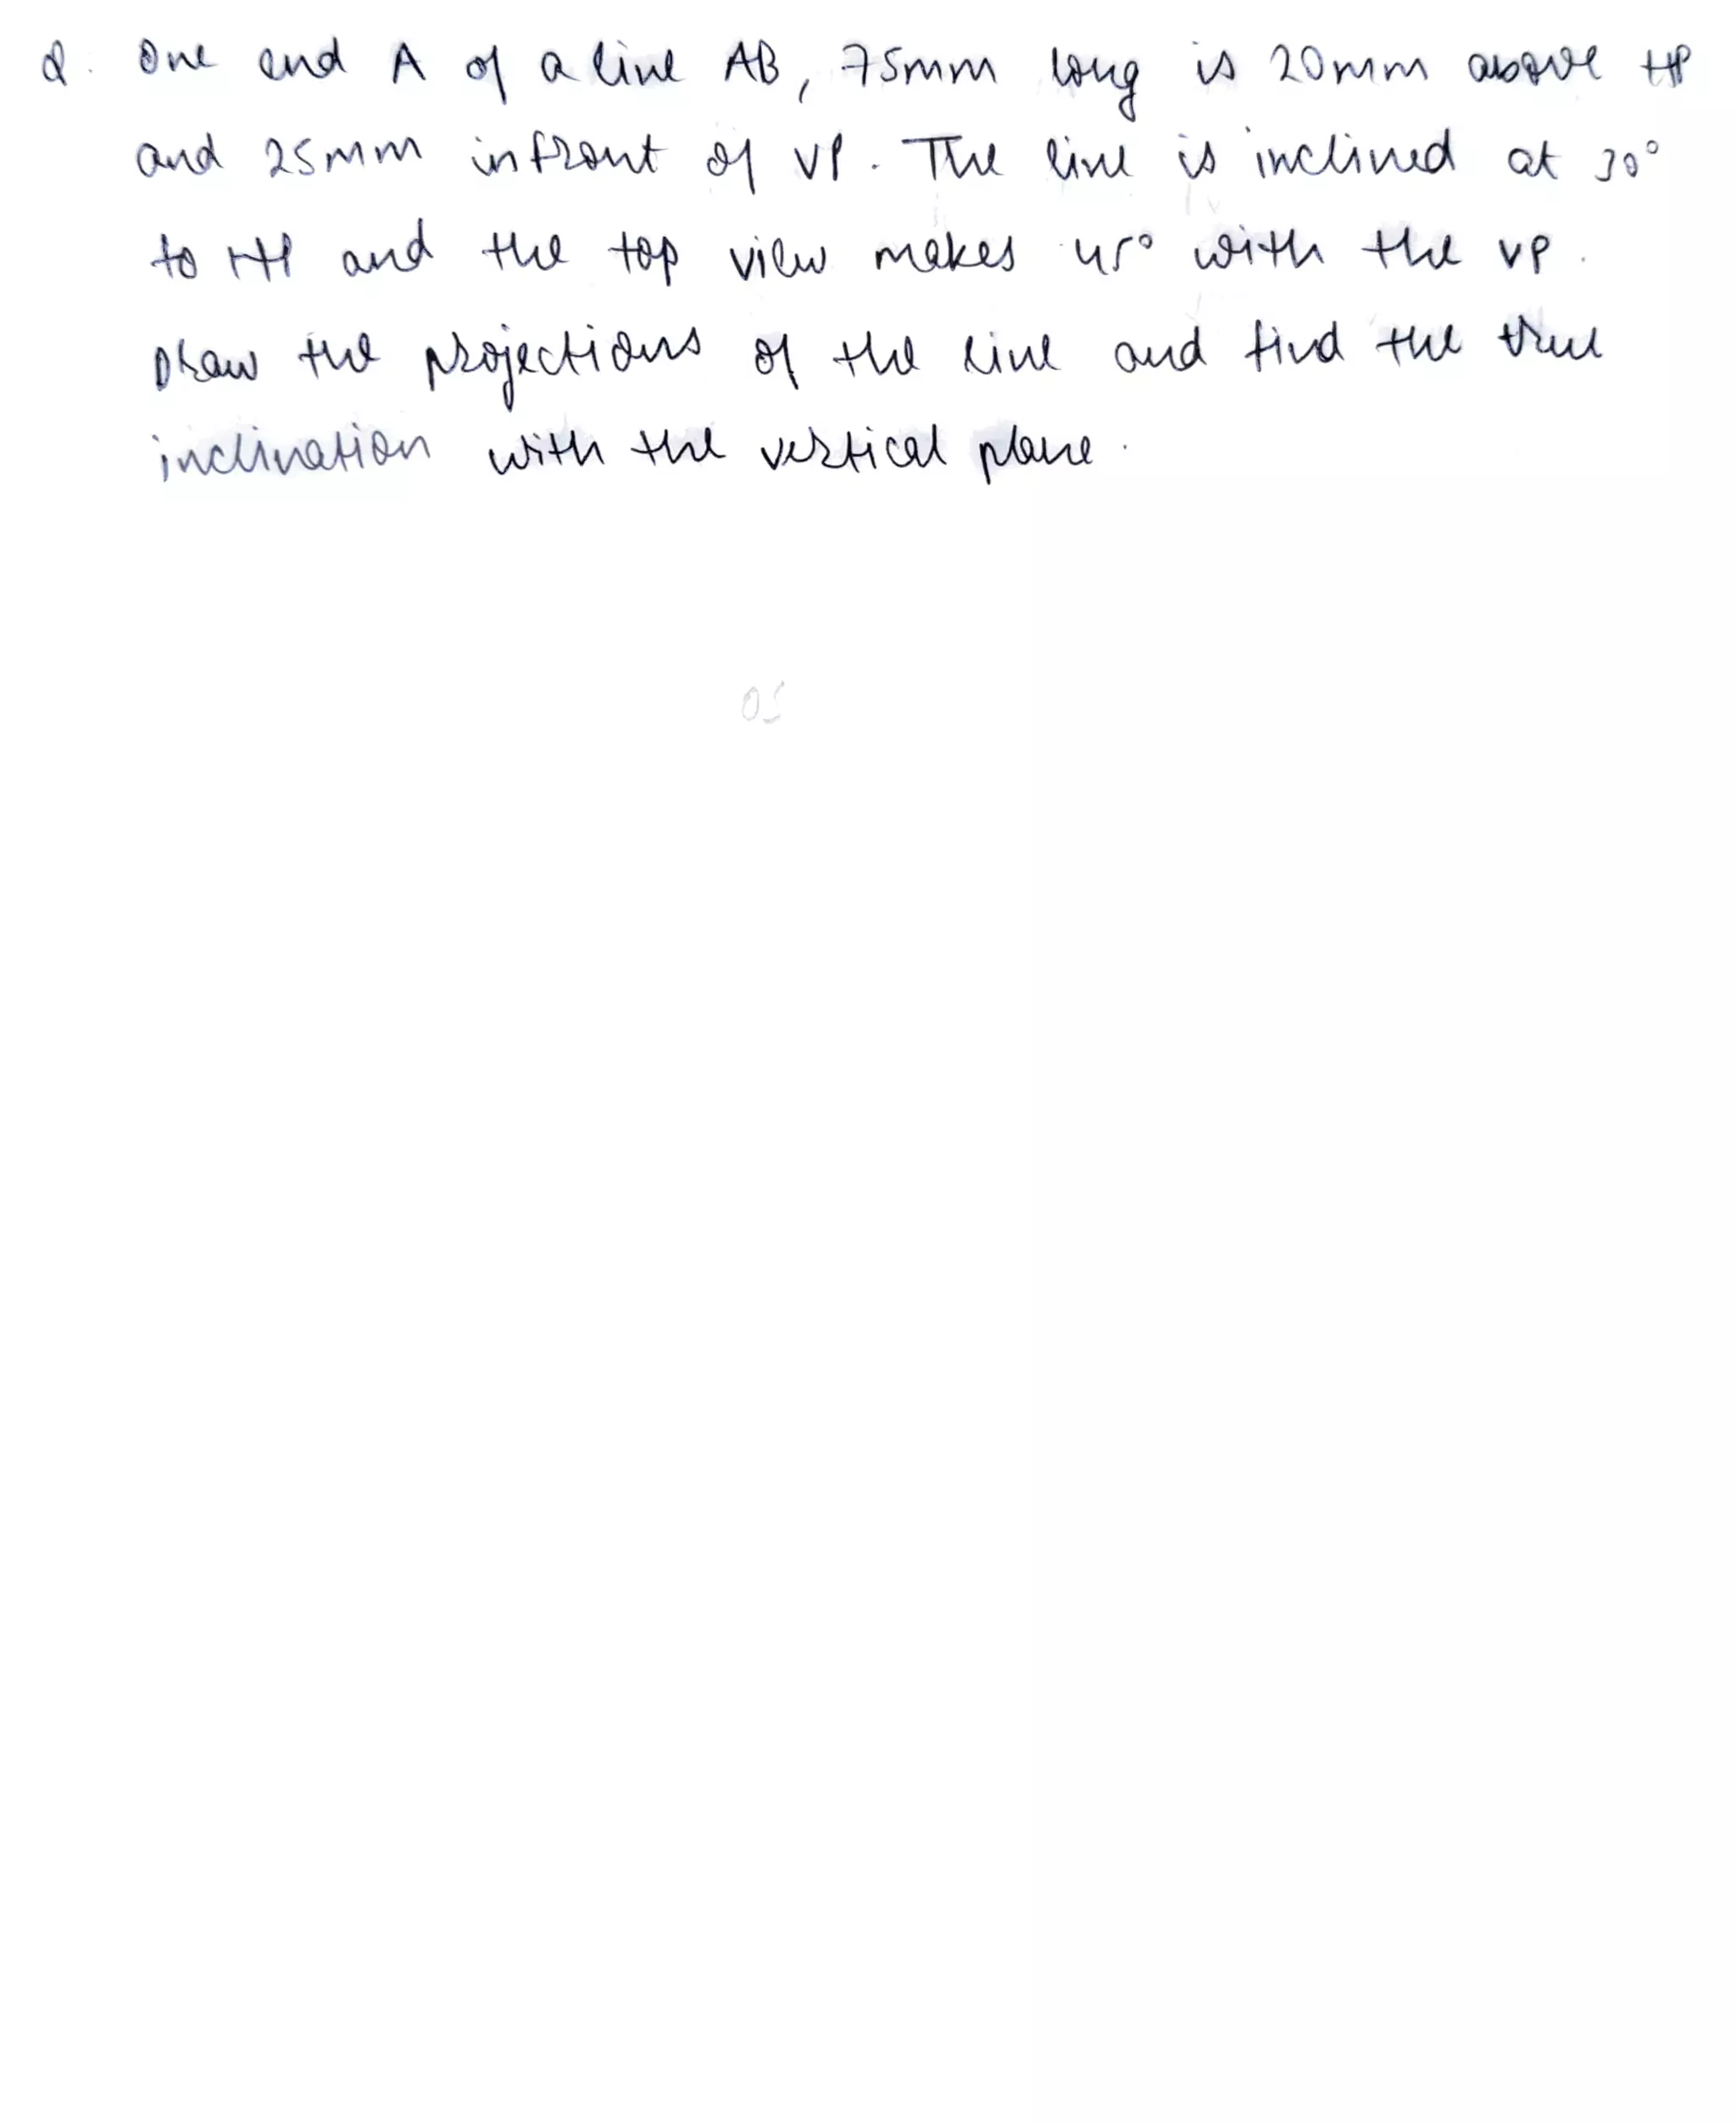 Q. One end A of a line AB, 75mm long is 20mm above HP
and 25mm infront of VP. The line is inclined at 30°
to HP and the top view makes 45° with the VP.
Draw the projections of the line and find the true
inclination with the vertical plane.